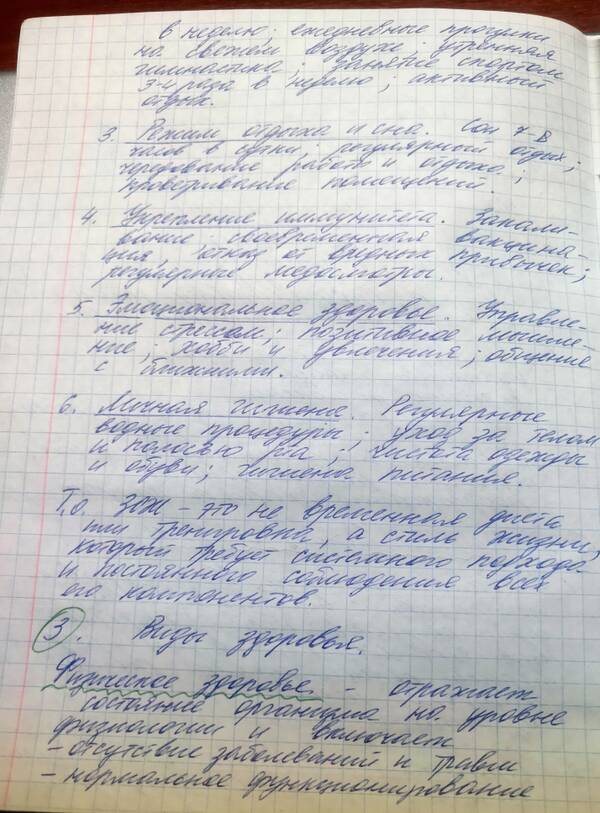 в неделю; ежедневные прогулки
на свежем воздухе; утренняя
гимнастика; занятие спортом
3-4 раза в неделю; активный
отдых.
3. Режим отдыха и сна. Сон 7-8
часов в сутки; регулярный отдых;
чередование работы и отдыха;
проветривание помещений.
4. Укрепление иммунитета. Закали-
вание; своевременная вакцина-
ция, отказ от вредных привычек;
регулярные медосмотры.
5. Эмоциональное здоровье. Управле-
ние стрессом; позитивное мышле-
ние; хобби и увлечения; общение
с близкими.
6. Личная гигиена. Регулярные
водные процедуры; уход за телом
и полостью рта; чистота одежды
и обуви; гигиена питания.
Т.о. ЗОЖ - это не временная диета
или тренировки, а стиль жизни,
который требует системного подхода
и постоянного соблюдения всех
его компонентов.
3. Виды здоровья.
Физическое здоровье - отражает
состояние организма на уровне
физиологии и включает
- отсутствие заболеваний и травм
- нормальное функционирование